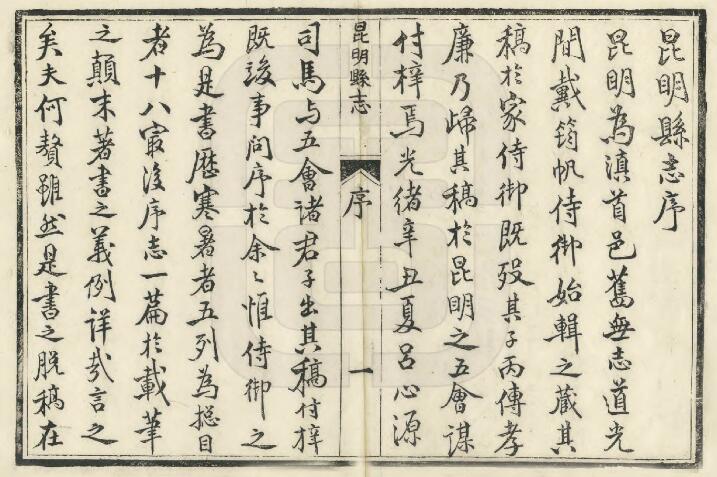 昆明縣志序
昆明為滇首邑舊無志道光
間戴筠帆侍御始輯之蔵其
稿於家侍御既歿其子丙傳孝
廉乃歸其稿於昆明之五會謀
付梓焉光緒辛丑夏呂心源
昆明縣志
序
一
司馬与五會諸君子出其稿付梓
既竣事問序於余〻惟侍御之
為是書歷寒暑者五列為總目
者十八冣後序志一篇於載筆
之顛末著書之義例詳哉言之
矣夫何贅雖然是書之脱稿在